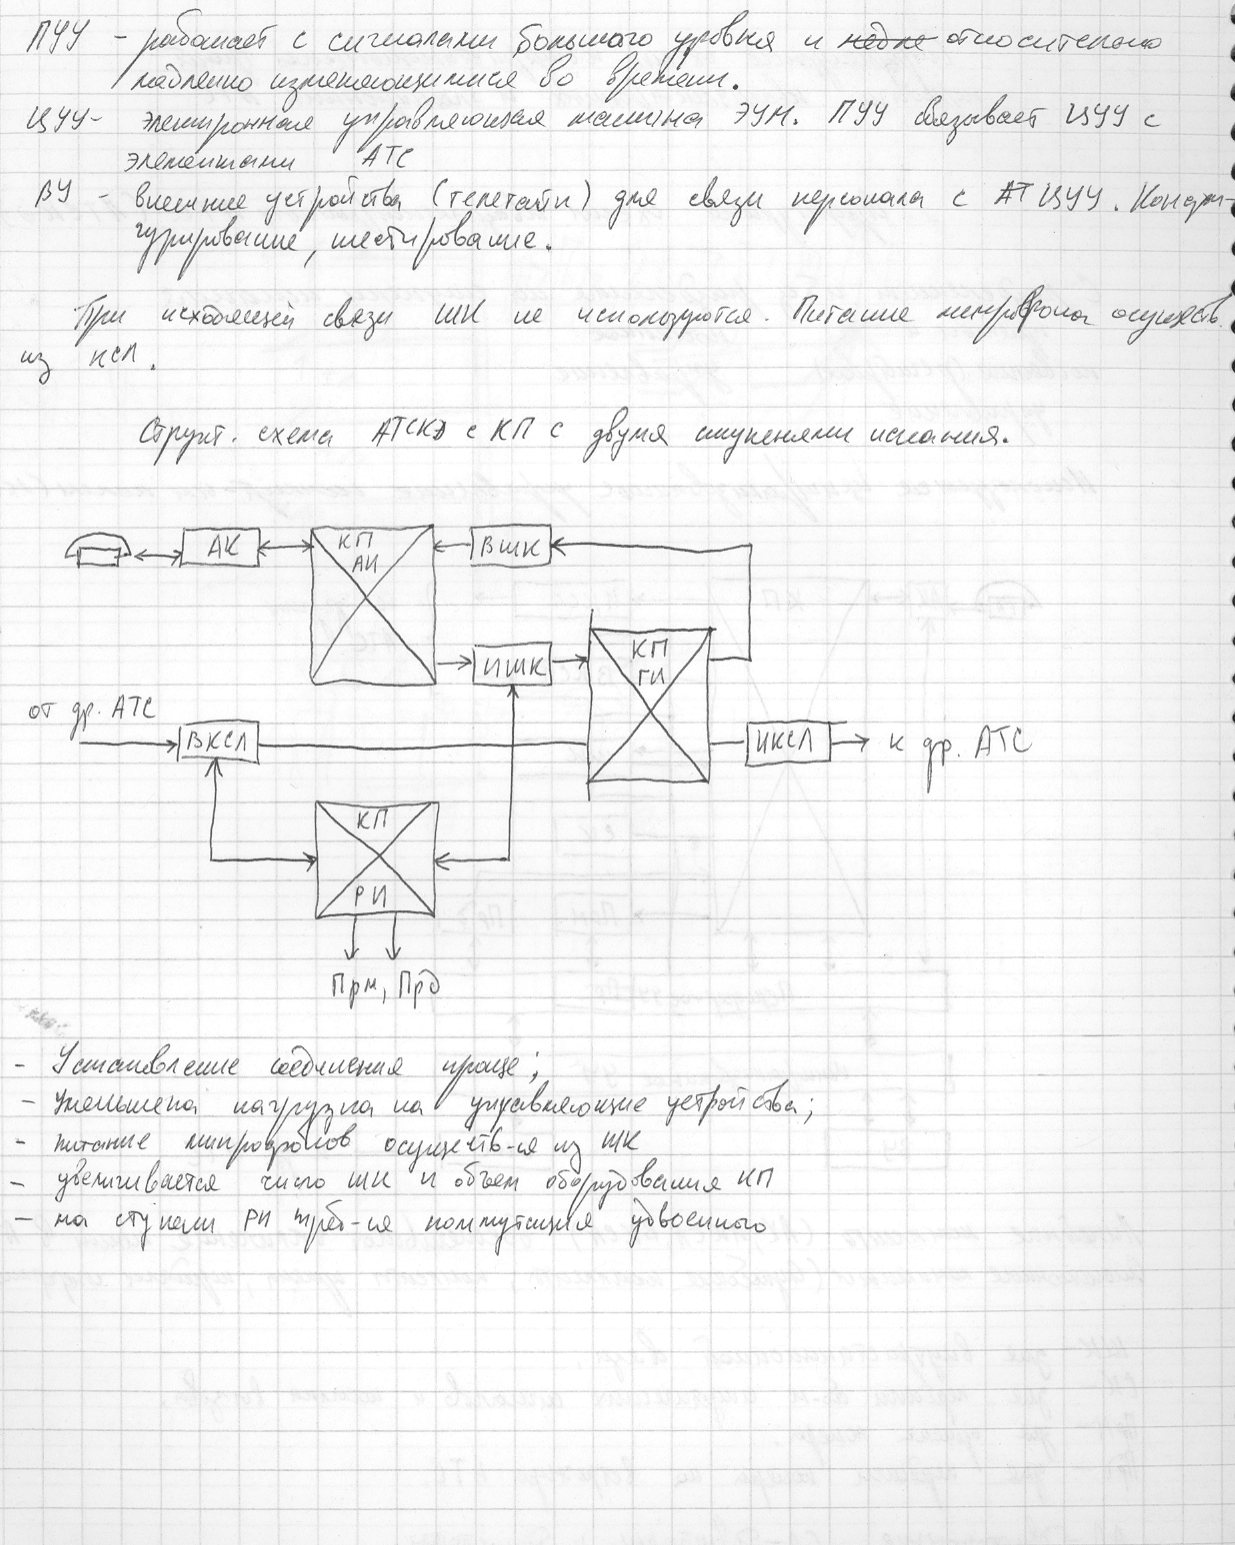 ПУУ – работает с сигналами большого уровня и медле относительно
медленно изменяющимися во времени.
ЦУУ – электронная управляющая машина ЭУМ. ПУУ связывает ЦУУ с
элементами АТС
ВУ – внешние устройства (телетайп) для связи персонала с АТ ЦУУ. Конфи-
гурирование, тестирование.
При исходящей связи ШК не используются. Питание микрофона осуществ.
из КСЛ.
Структ. схема АТСКЭ с КП с двумя ступенями искания.
АК
КП
АИ
ВШК
ИШК
КП
ГИ
от др. АТС
ВКСЛ
ИКСЛ
к др. АТС
КП
РИ
Прм, Прд
- Установление соединения проще;
- Уменьшена нагрузка на управляющие устройства;
- питание микрофонов осуществ-ся из ШК
- увеличивается число ШК и объем оборудования КП
- на ступени РИ треб-ся коммутация удвоенного